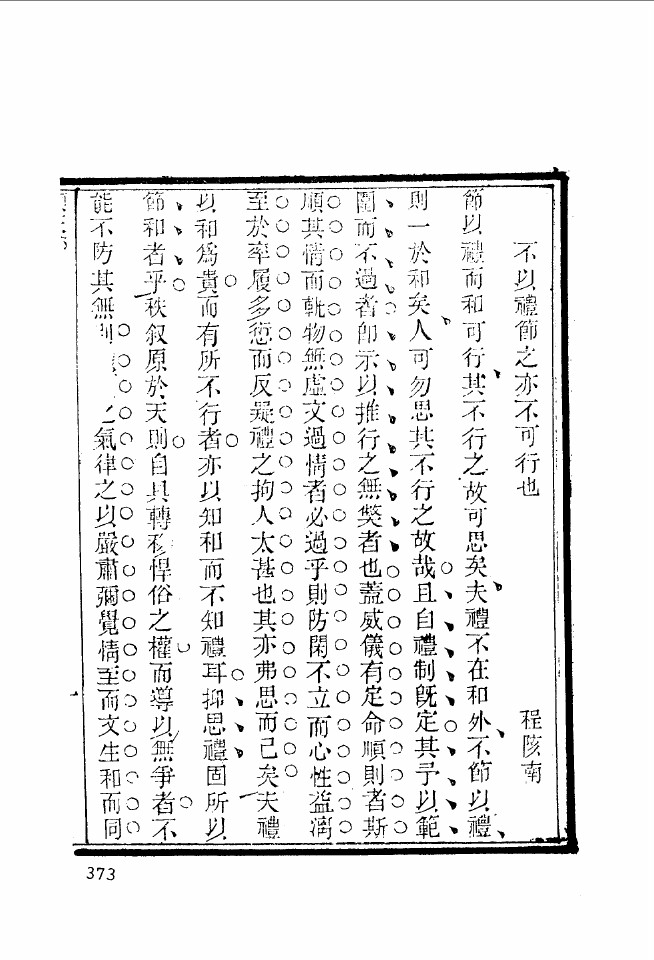 不以禮節之亦不可行也
程陔南
節以禮而和可行其不行之故可思矣夫禮不在和外不節以禮
則一於和矣人可勿思其不行之故哉且自禮制旣定其予以範
圍而不過者卽示以推行之無獘者也蓋威儀有定命順則者斯
順其情而軌物無虛文過情者必過乎則防閑不立而心性益漓
至於率履多愆而反疑禮之拘人太甚也其亦弗思而已矣夫禮
以和爲貴而有所不行者亦以知和而不知禮耳抑思禮固所以
節和者乎秩叙原於天則自具轉移悍俗之權而導以無爭者不
能不防其無氣律之以嚴肅彌覺情至而文生和而同
373